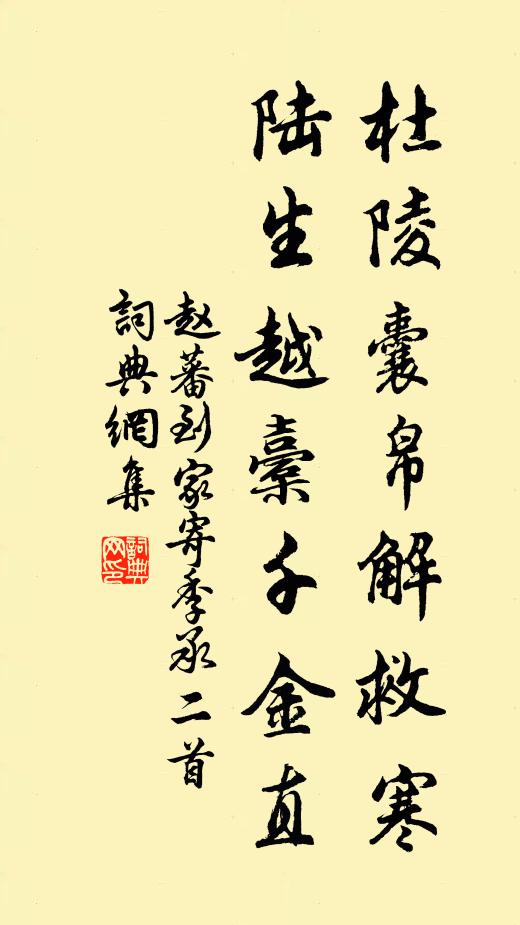 杜陵囊帛解救寒
陆生越橐千金直
赵蕃到家寄季承二首
詞典網集
詞典網印